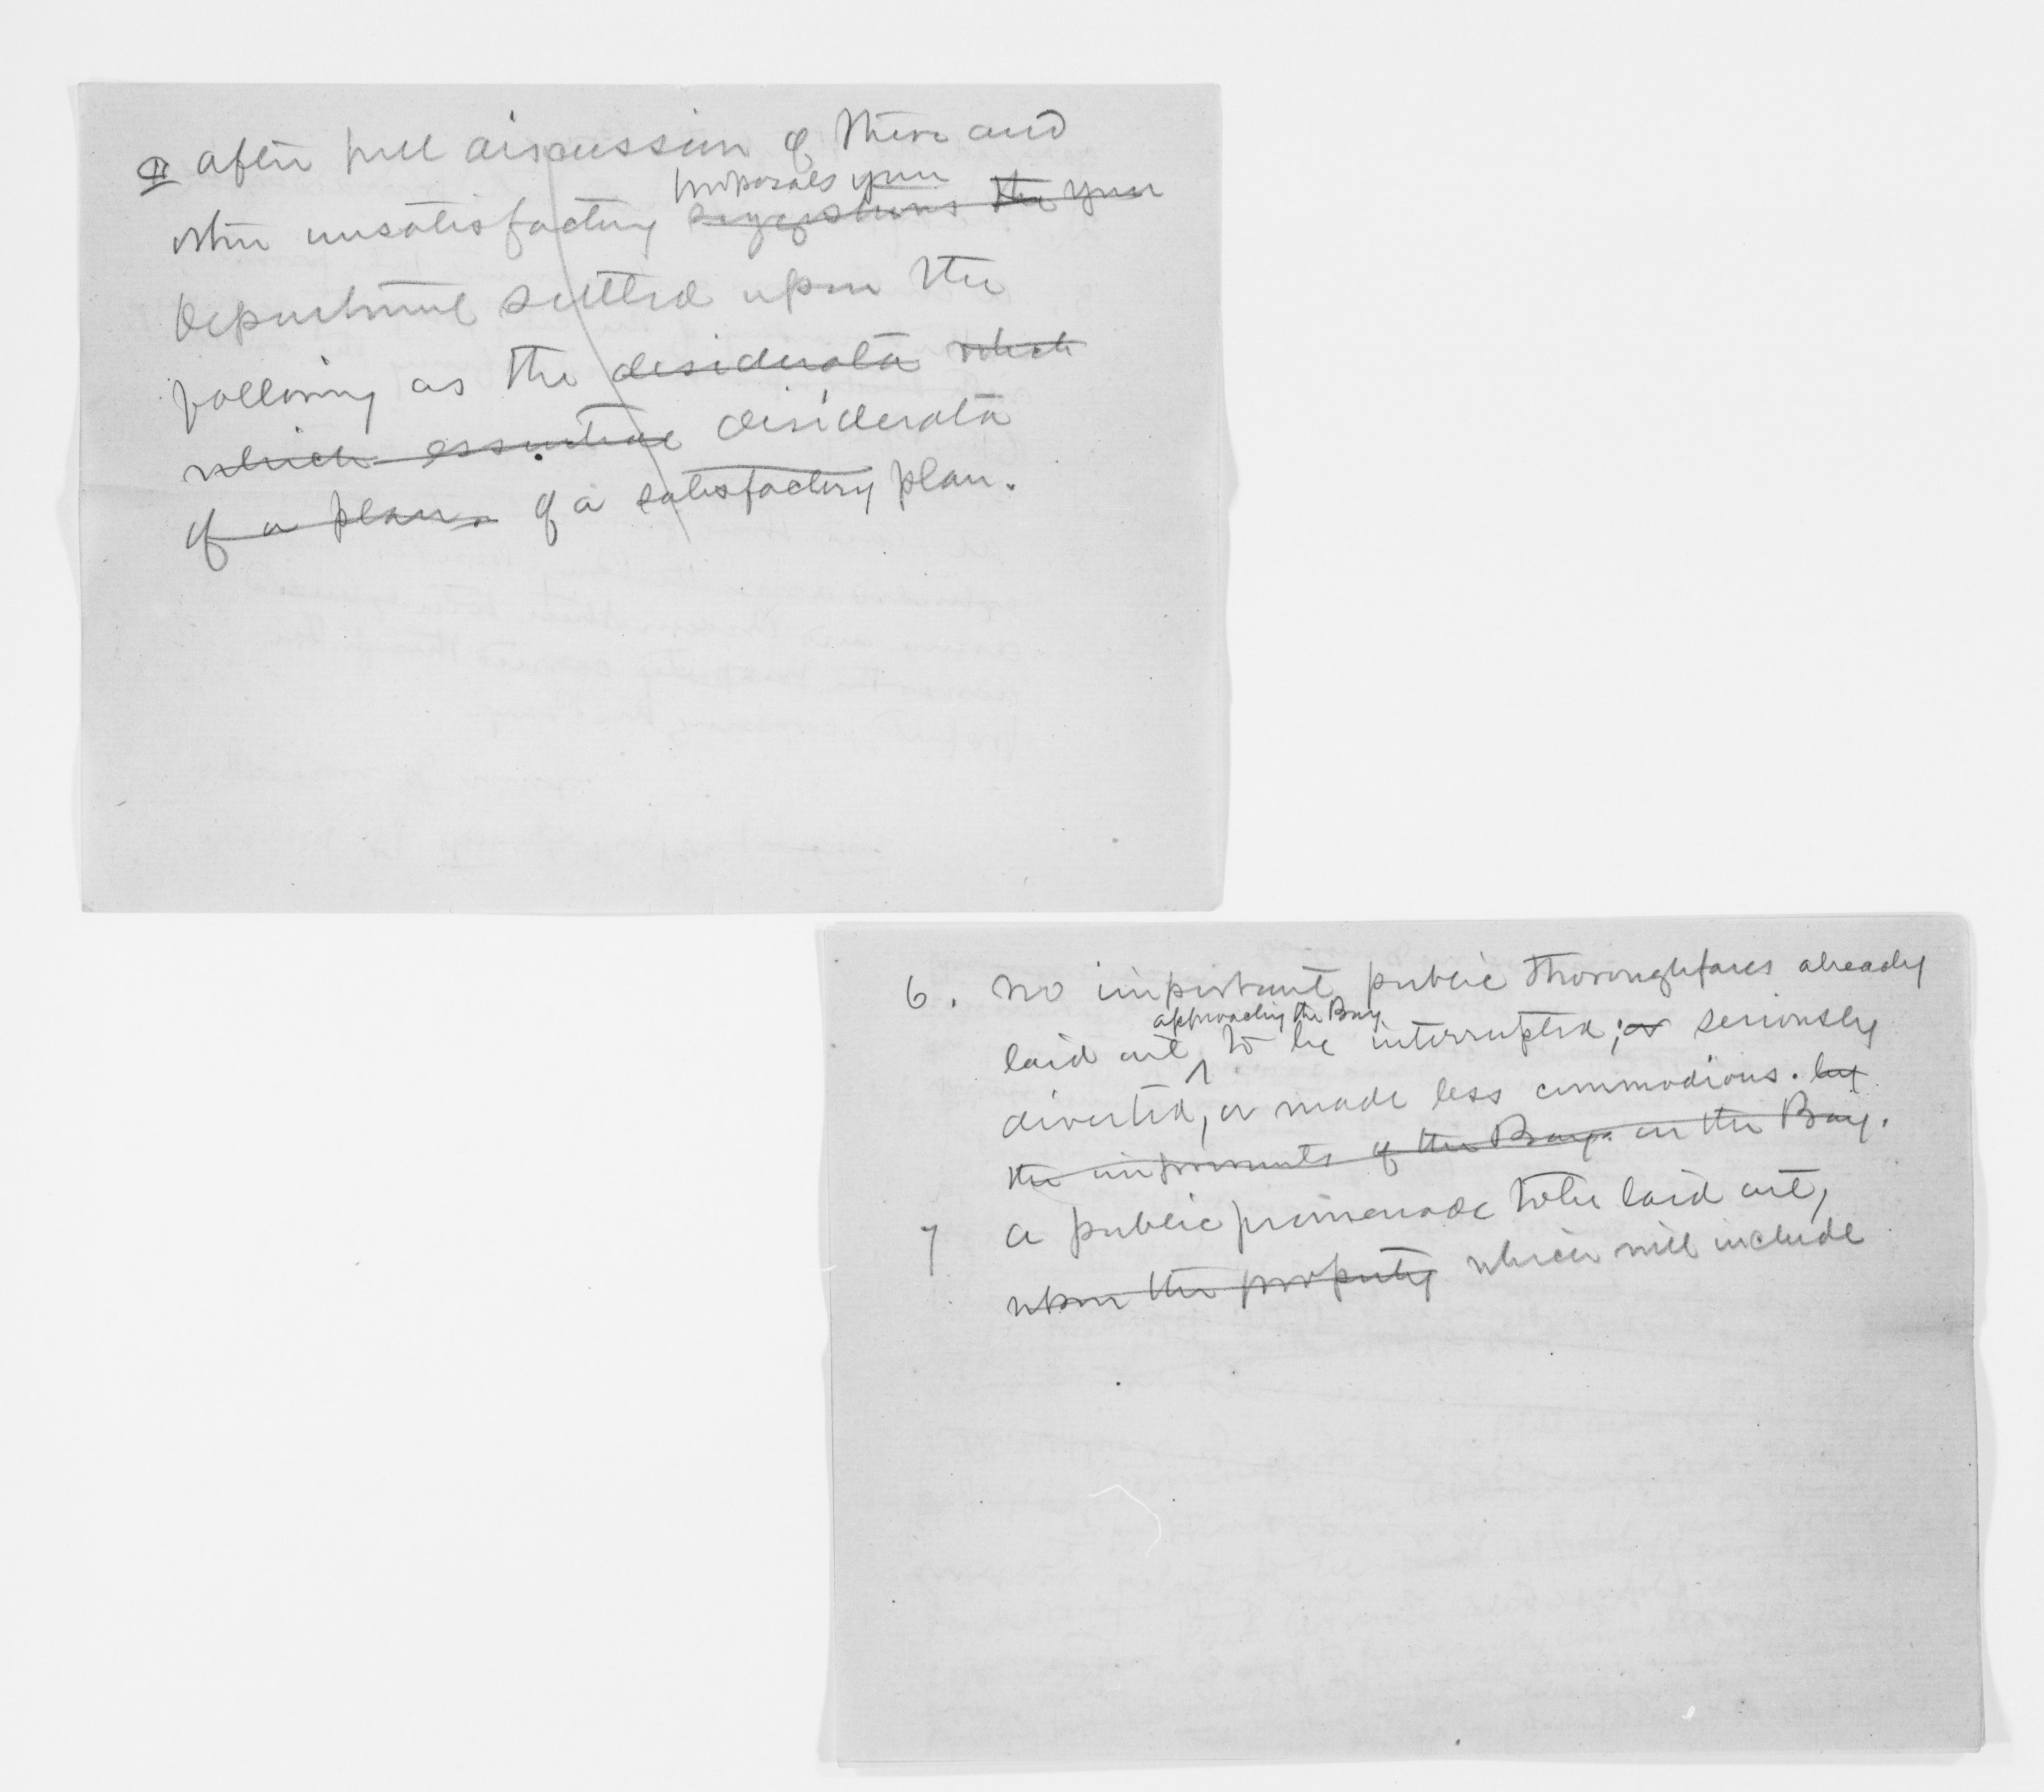 ¶ After full discussion of these and
proposals your
other unsatisfactory suggestions the your
Department settled upon the
following as the desiderata which
which essential desiderata
of a plan. of a satisfactory plan.
6. No important public thoroughfares already
approaching the Bay
laid out to be interrupted; or seriously
diverted, or made less commodious. by
the improvements of the Bay. on the Bay.
7 A public promenade to be laid out,
upon the property which will include